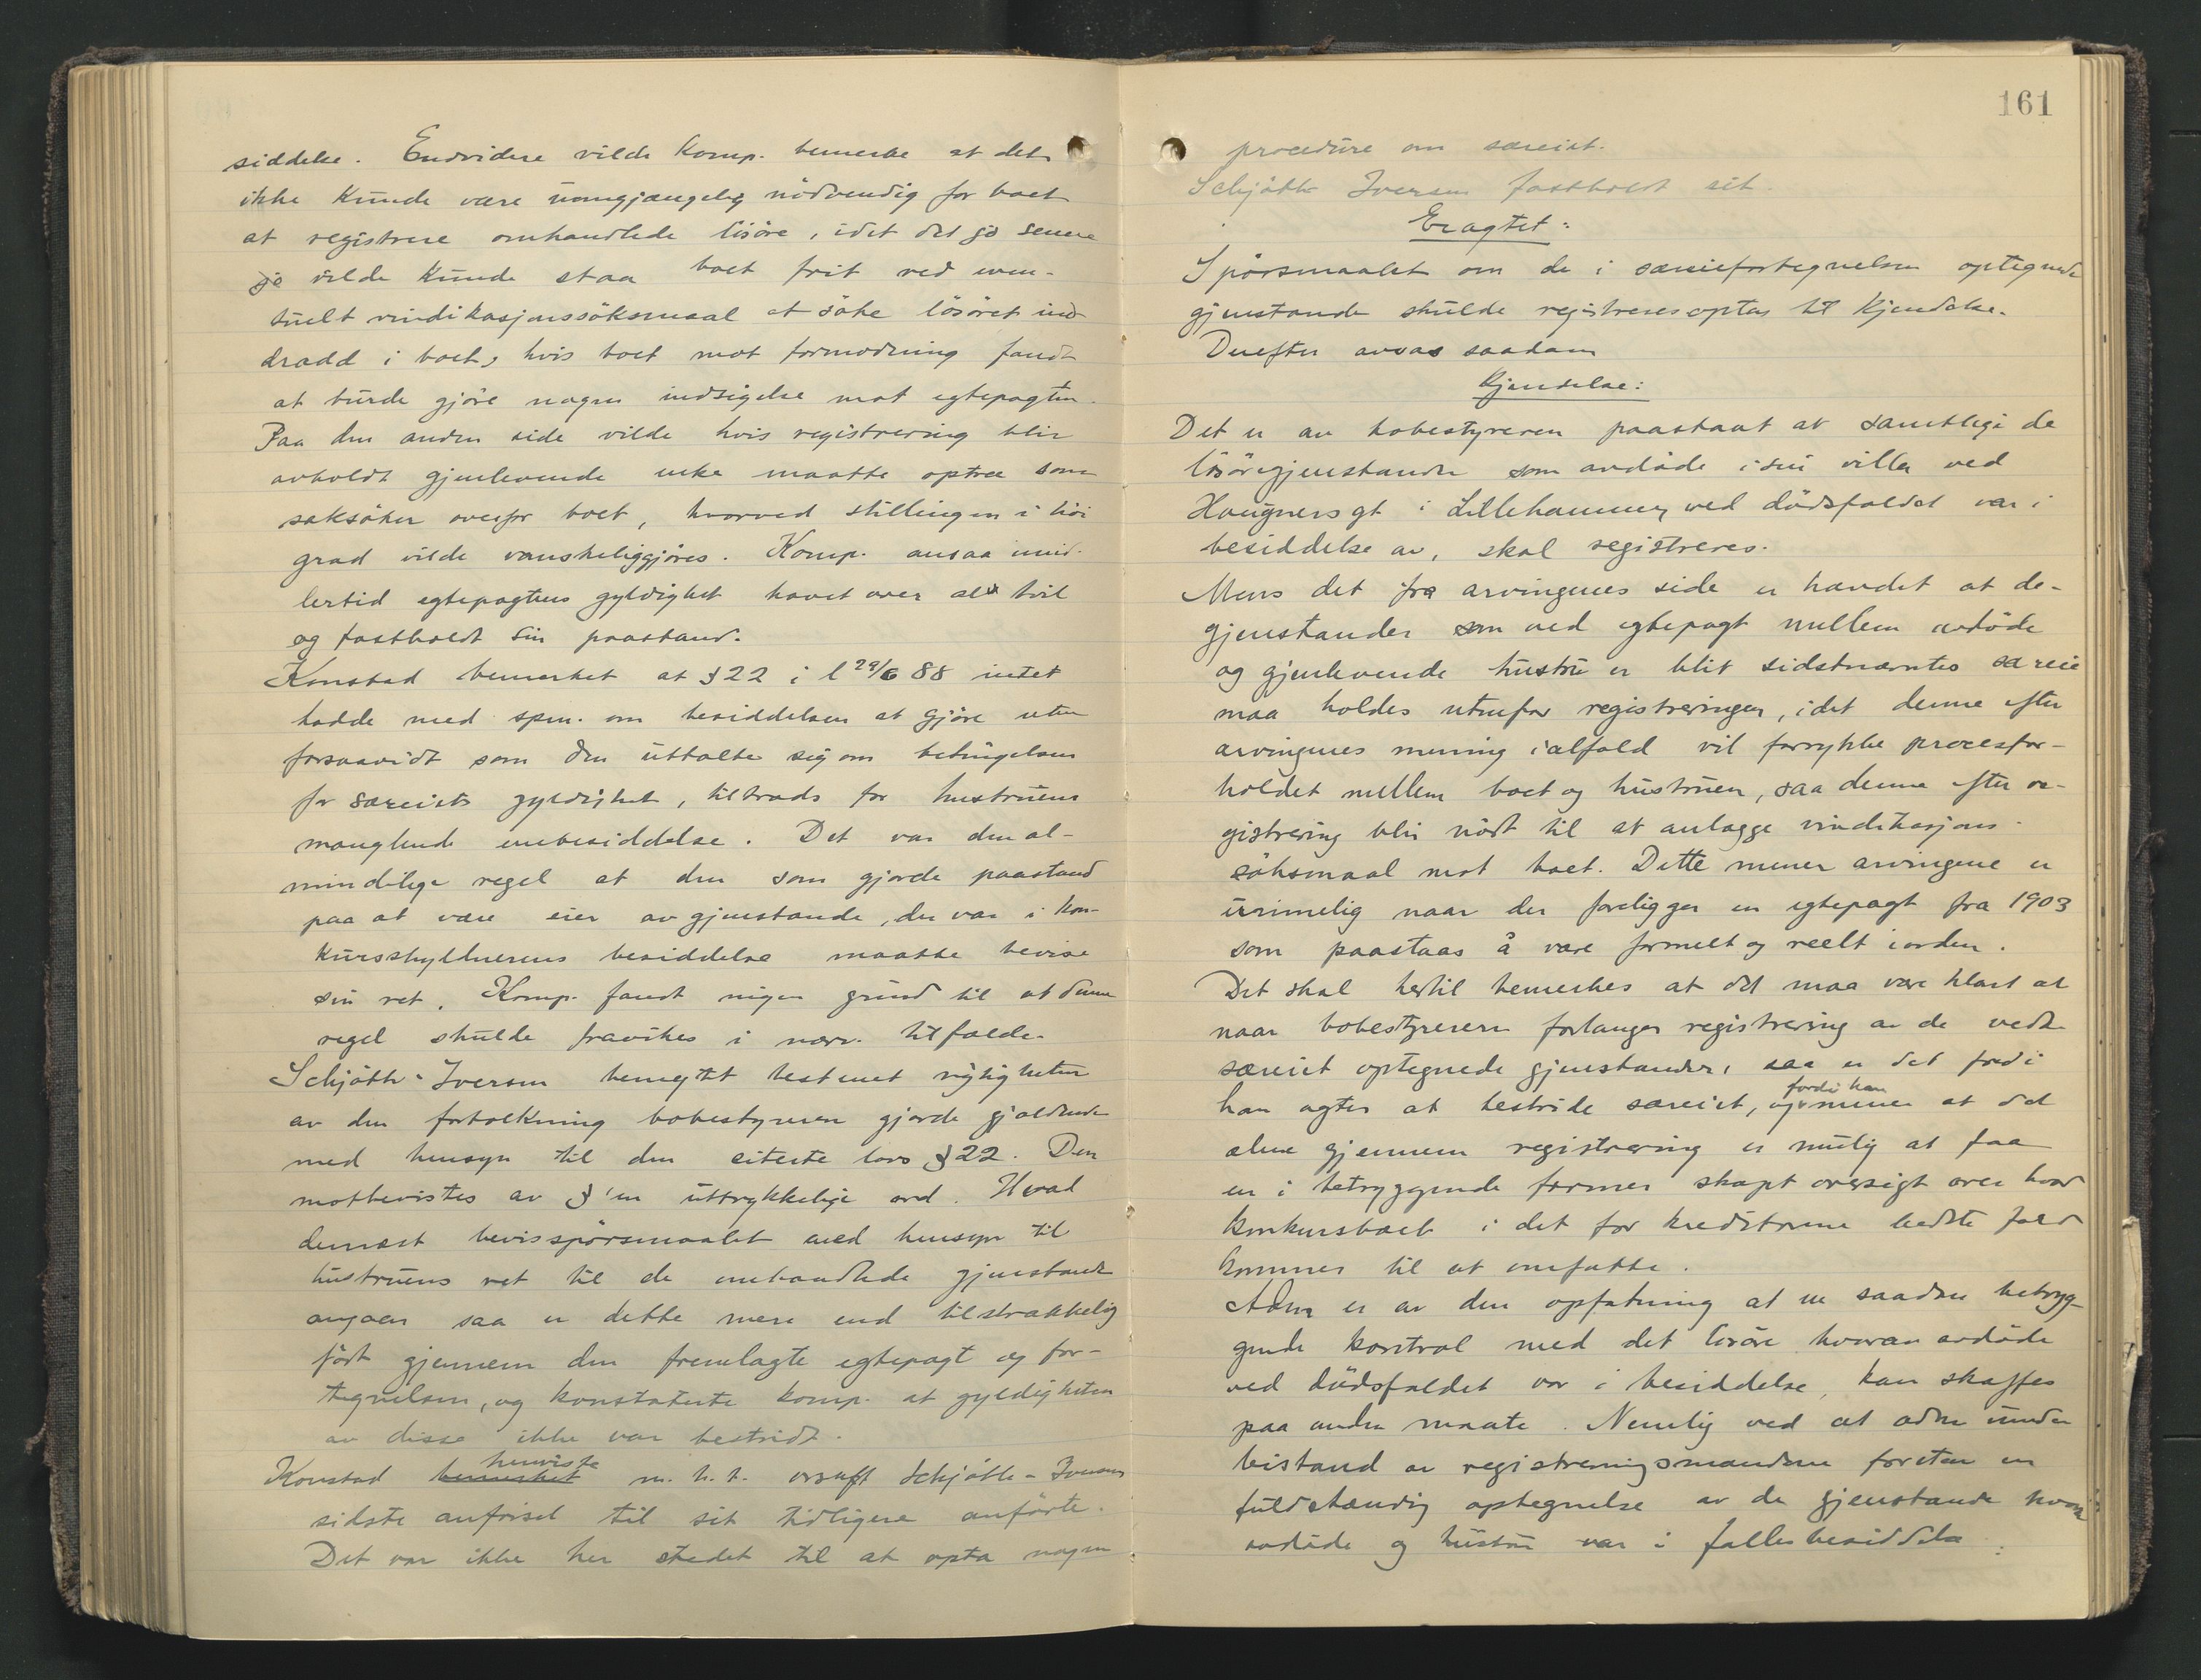 siddelse. Endvidere vilde Komp. bemerke at det
ikke kunde være uomgjængelig nödvendig for boet
at registrere omhandlede lösöre, idet det jo senere
jo vilde kunde staa boet frit ved even-
tuelt vindikasjonssöksmaal at söke lösöret ind-
dradd i boet, hvis boet mot formodning fandt
at burde gjöre nogen indsigelse mot egtepagten.
Paa den anden side vilde hvis registrering blir
avholdt gjenlevende enke maatte optræ som
saksöker overfor boet, hvorved stillingen i höi
grad vilde vanskeliggjöres. Komp. ansaa imid-
lertid egtepagtens gyldighet hævet over al tvil
og fastholdt sin paastand.
Konstad bemerket at § 22 i l 29/6 88 intet
hadde med spm. om besiddelsen at gjöre uten
forsaavidt som den uttalte sig om betingelsen
for særeiets gyldighet, tiltrods for hustruens
manglende enebesiddelse. Det var den al-
mindelige regel at den som gjorde paastand
paa at være eier av gjenstande, der var i kon-
kursskyldnerens besiddelse maatte bevise
sin ret. Komp. fandt ingen grund til at denne
regel skulde fravikes i nærv. tilfælde.
Schjöth-Iversen benegtet bestemt rigtigheten
av den fortolkning bobestyreren gjorde gjældende
med hensyn til den citerte lovs § 22. Den
motbevistes av §'en uttrykkelige ord. Hvad
dernæst bevisspörsmaalet med hensyn til
hustruens ret til de omhandlede gjenstande
angaar saa er dette mere end tilstrækkelig
fört gjennem den fremlagte egtepagt og for-
tegnelsen, og konstaterte komp. at gyldigheten
av disse ikke var bestridt.
Konstad bemerket henviste m. h. t. orsagf Schjöth-Iversens
sidste anförsel til sit tidligere anförte.
Det var ikke her stedet til at opta nogen
161
procedure om særeiet.
Schjöth Iversen fastholdt sit.
Eragtet:
Spörsmaalet om de i særeiefortegnelsen optegnede
gjenstande skulde registreres optas til Kjendelse.
Derefter avsas saadan
Kjendelse:
Det er av bobestyreren paastaat at samtlige de
lösöregjenstande som avdöde i sin villa ved
Haugnersgt i Lillehammer, ved dödsfaldet var i
besiddelse av, skal registreres.
Mens det fra arvingenes side er hævdet at de-
gjenstander som ved egtepagt mellem avdöde
og gjenlevende hustru er blit sidstnævntes særeie
maa holdes utenfor registreringen, idet denne efter
arvingenes mening ialfald vil forrykke procesfor-
holdet mellem boet og hustruen, saa denne efter re-
gistrering blir nödt til at anlægge vindikasjons-
söksmaal mot boet. Dette mener arvingene er
urimelig naar der foreligger en egtepagt fra 1903
som paastaas å være formelt og reelt i orden.
Det skal hertil bemerkes at det maa være klart at
naar bobestyreren forlanger registrering av de ved
særeiet optegnede gjenstander, saa er det fordi
han agter at bestride særeiet, og fordi han mener at det
alene gjennem registrering er mulig at faa
en i betryggende former skapt oversigt over hvad
konkursboet i det for kreditorene bedste fald
kommer til at omfatte.
Adm er av den opfatning at en saadan betryg-
gende kontrol med det lösöre hvorav avdöde
ved dödsfaldet var i besiddelse, kan skaffes
paa anden maate. Nemlig ved at adm under
bistand av registreringsmændene foretar en
fuldstændig optegnelse av de gjenstande hvorav
avdöde og hustru var i fællesbesiddelse.